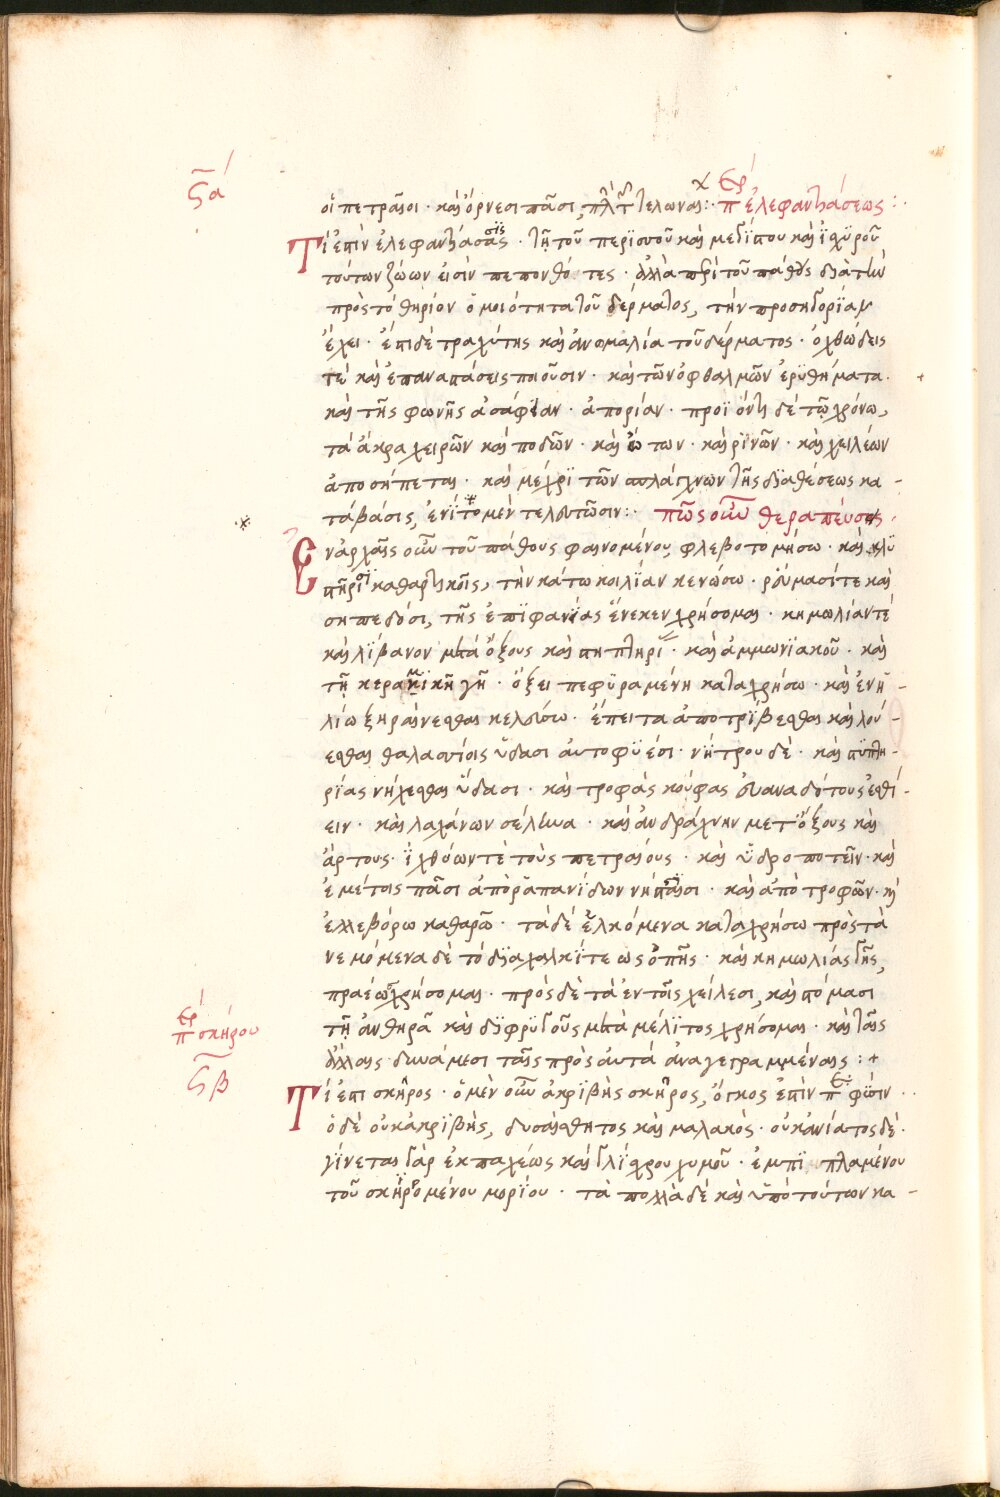 ϛα
οἱ πετραῖοι · καὶ ὄρνεσι πᾶσι, πλὴν τελωναι : περὶ ἐλεφαντιάσεως :
Τί ἐστιν ἐλεφαντίασις · τῇ τοῦ περισσοῦ καὶ μεγίστου καὶ ἰσχϋροῦ
τούτων ζώων εἰσὶν πεπονθότες · ἀλλὰ περὶ τοῦ πάθους διὰ τὴν
πρὸς τὸ θηρίον ὁμοιότητα τοῦ δέρματος, τὴν προσηγορΐαν
ἔχει · ἔπι δὲ τραχύτης καὶ ἀνωμαλία τοῦ δέρματος · ὀχθώδεις
τὲ καὶ ἐπαναστάσεις ποιοῦσιν · καὶ τῶν ὀφθαλμῶν ἐρϋθήματα ·
καὶ τῆς φωνῆς ἀσάφιαν · ἀπορίαν · προϊόντι δὲ τῷ χρόνω,
τὰ ἄκρα χειρῶν καὶ ποδῶν · καὶ ὤτων · καὶ ρϊνῶν · καὶ χειλέων
ἀποσήπεται · καὶ μέχρϊ τῶν σπλάγχνων τῆς διαθέσεως κα-
τάβασις, ἐνΐοτο μὲν τελευτῶσιν : πῶς οὖν θεραπεύσεις ·
Ἐν ἀρχαῖς οὖν τοῦ πάθους φαινομένου, φλεβοτομήσω · καὶ κλϋ
στῆρσι καθαρτικοῖς, τὴν κάτω κοιλΐαν κενώσω · ρεύμασί τε καὶ
σηπεδόσι, τῆς ἐπϊφανίας ἕνεκεν χρήσομαι · κημωλίαν τὲ
καὶ λΐβανον μετὰ ὄξους καὶ στηπτηρί · καὶ ἀμμωνϊακοῦ · καὶ
τῇ κεραμικῆ γῆ · ὄξει πεφϋραμένη καταχρήσω · καὶ ἐν ἡ-
λίω ξηραίνεσθαι κελεύσω · ἔπειτα ἀποτρΐβεσθαι καὶ λού-
εσθαι θαλασσίοις ὕδασι αὐτοφϋέσι · νΐτρου δὲ · καὶ στϋπτη-
ρίας νήχεσθαι ὕδασι · καὶ τροφὰς κούφας εὐαναδότους ἐσθί-
ειν · καὶ λαχάνων σέλινα · καὶ ἀνδράχνην μετ ὄξους καὶ
ἄρτους · ἰχθύων τὲ τοὺς πετραίους · καὶ ὕδροποτεῖν · καὶ
ἐμέτοις πᾶσι ἀπὸ ραπανίδων νήσταισι · καὶ ἀπὸ τροφῶν · καὶ
ἐλλεβόρω καθαρῶ · τὰ δὲ ἑλκόμενα καταχρήσω πρὸς τὰ
νεμόμενα δὲ τὸ διαχαλκΐτεως ὀπῆς · καὶ κημωλίας γῆς,
πραέως χρήσομαι · πρὸς δὲ τὰ ἐν τοῖς χείλεσι, καὶ στόμασι
τῇ ἀνθηρᾶ καὶ διφρϋγοῦς μετὰ μέλϊτος χρήσομαι · καὶ ταῖς
ἄλλαις δυνάμεσι ταῖς πρὸς αὐτὰ ἀναγεγραμμέναις : +
περὶ σκήρου
ϛβ
Τί ἐστι σκῆρος · ὁ μὲν οὖν ἀκριβὴς σκῆρος, ὄγκος ἐστὶν περὶ φϋσιν ·
ὁ δὲ οὐκ ἀκρϊβὴς, δυσαίσθητος καὶ μαλακὸς · οὐκ ἀνίατος δὲ ·
γίνεται γὰρ ἐκ παχέως καὶ γλΐσχρου χυμοῦ · ἐμπϊπλαμένου
τοῦ σκηρομένου μορΐου · τὰ πολλὰ δὲ καὶ ὑπὸ τούτων κα-